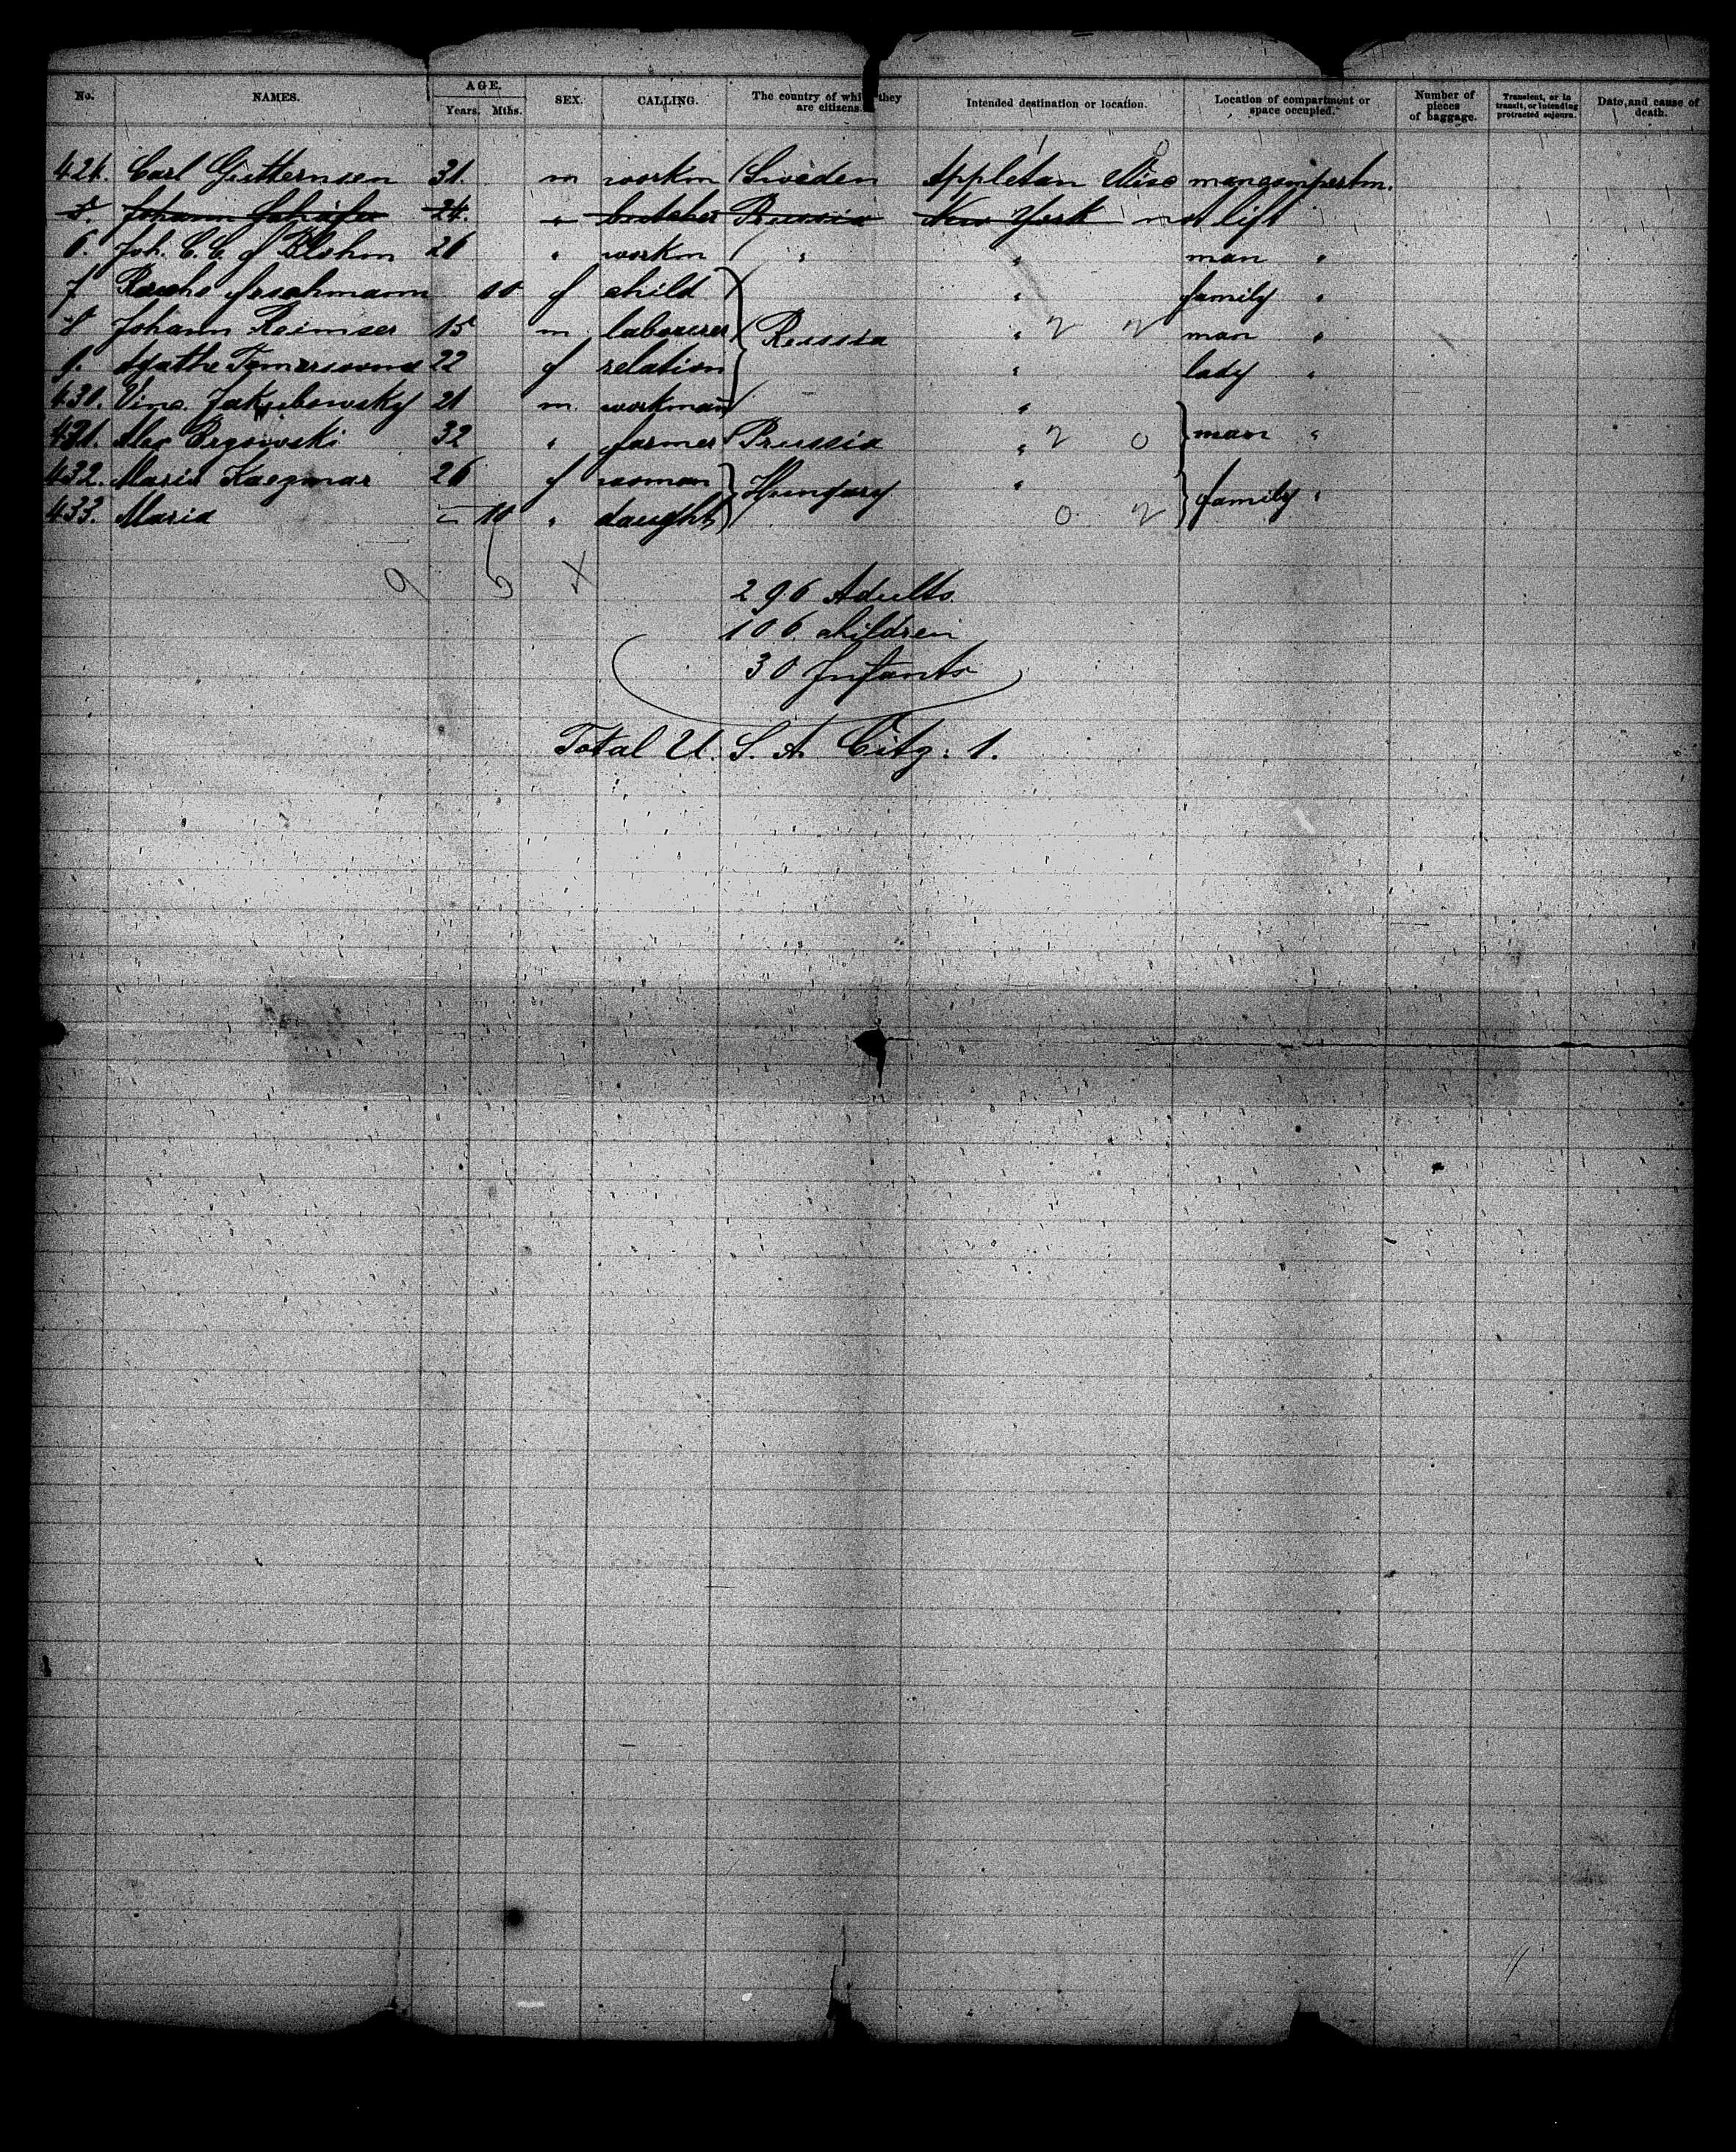 No. NAMES. AGE. Years. Mths. SEX. CALLING. The country of which they are citizens. Intended destination or location. Location of compartment or space occupied. Number of pieces of baggage. Transient, or in transit, or intending protracted sojourn. Date, and cause of death.
424. Carl Gutternsen 31. m workm Sweden Appletan Wisc mancompertm.
5. Johann Schäfer 24. " butcher Prussia New York not lift
6. Joh. C. C. f Blohm 26 " workm " " man "
7 Fraschmann 10 f child " family "
8 Johann Reimser 15 m labourer Russia " 2 2 man "
9. Agathe 22 f relation " lady "
430. Vinc. Jakubowsky 21 m. workman "
431. Alex 32 " farmer Prussia " 2 0 man "
432. Maria Kaczmar 26 f woman Hungary " family "
433. Maria 10 " daught 0 2
9 6
296 Adults.
106. children
30 Infants
Total U. S. A. Citz: 1.